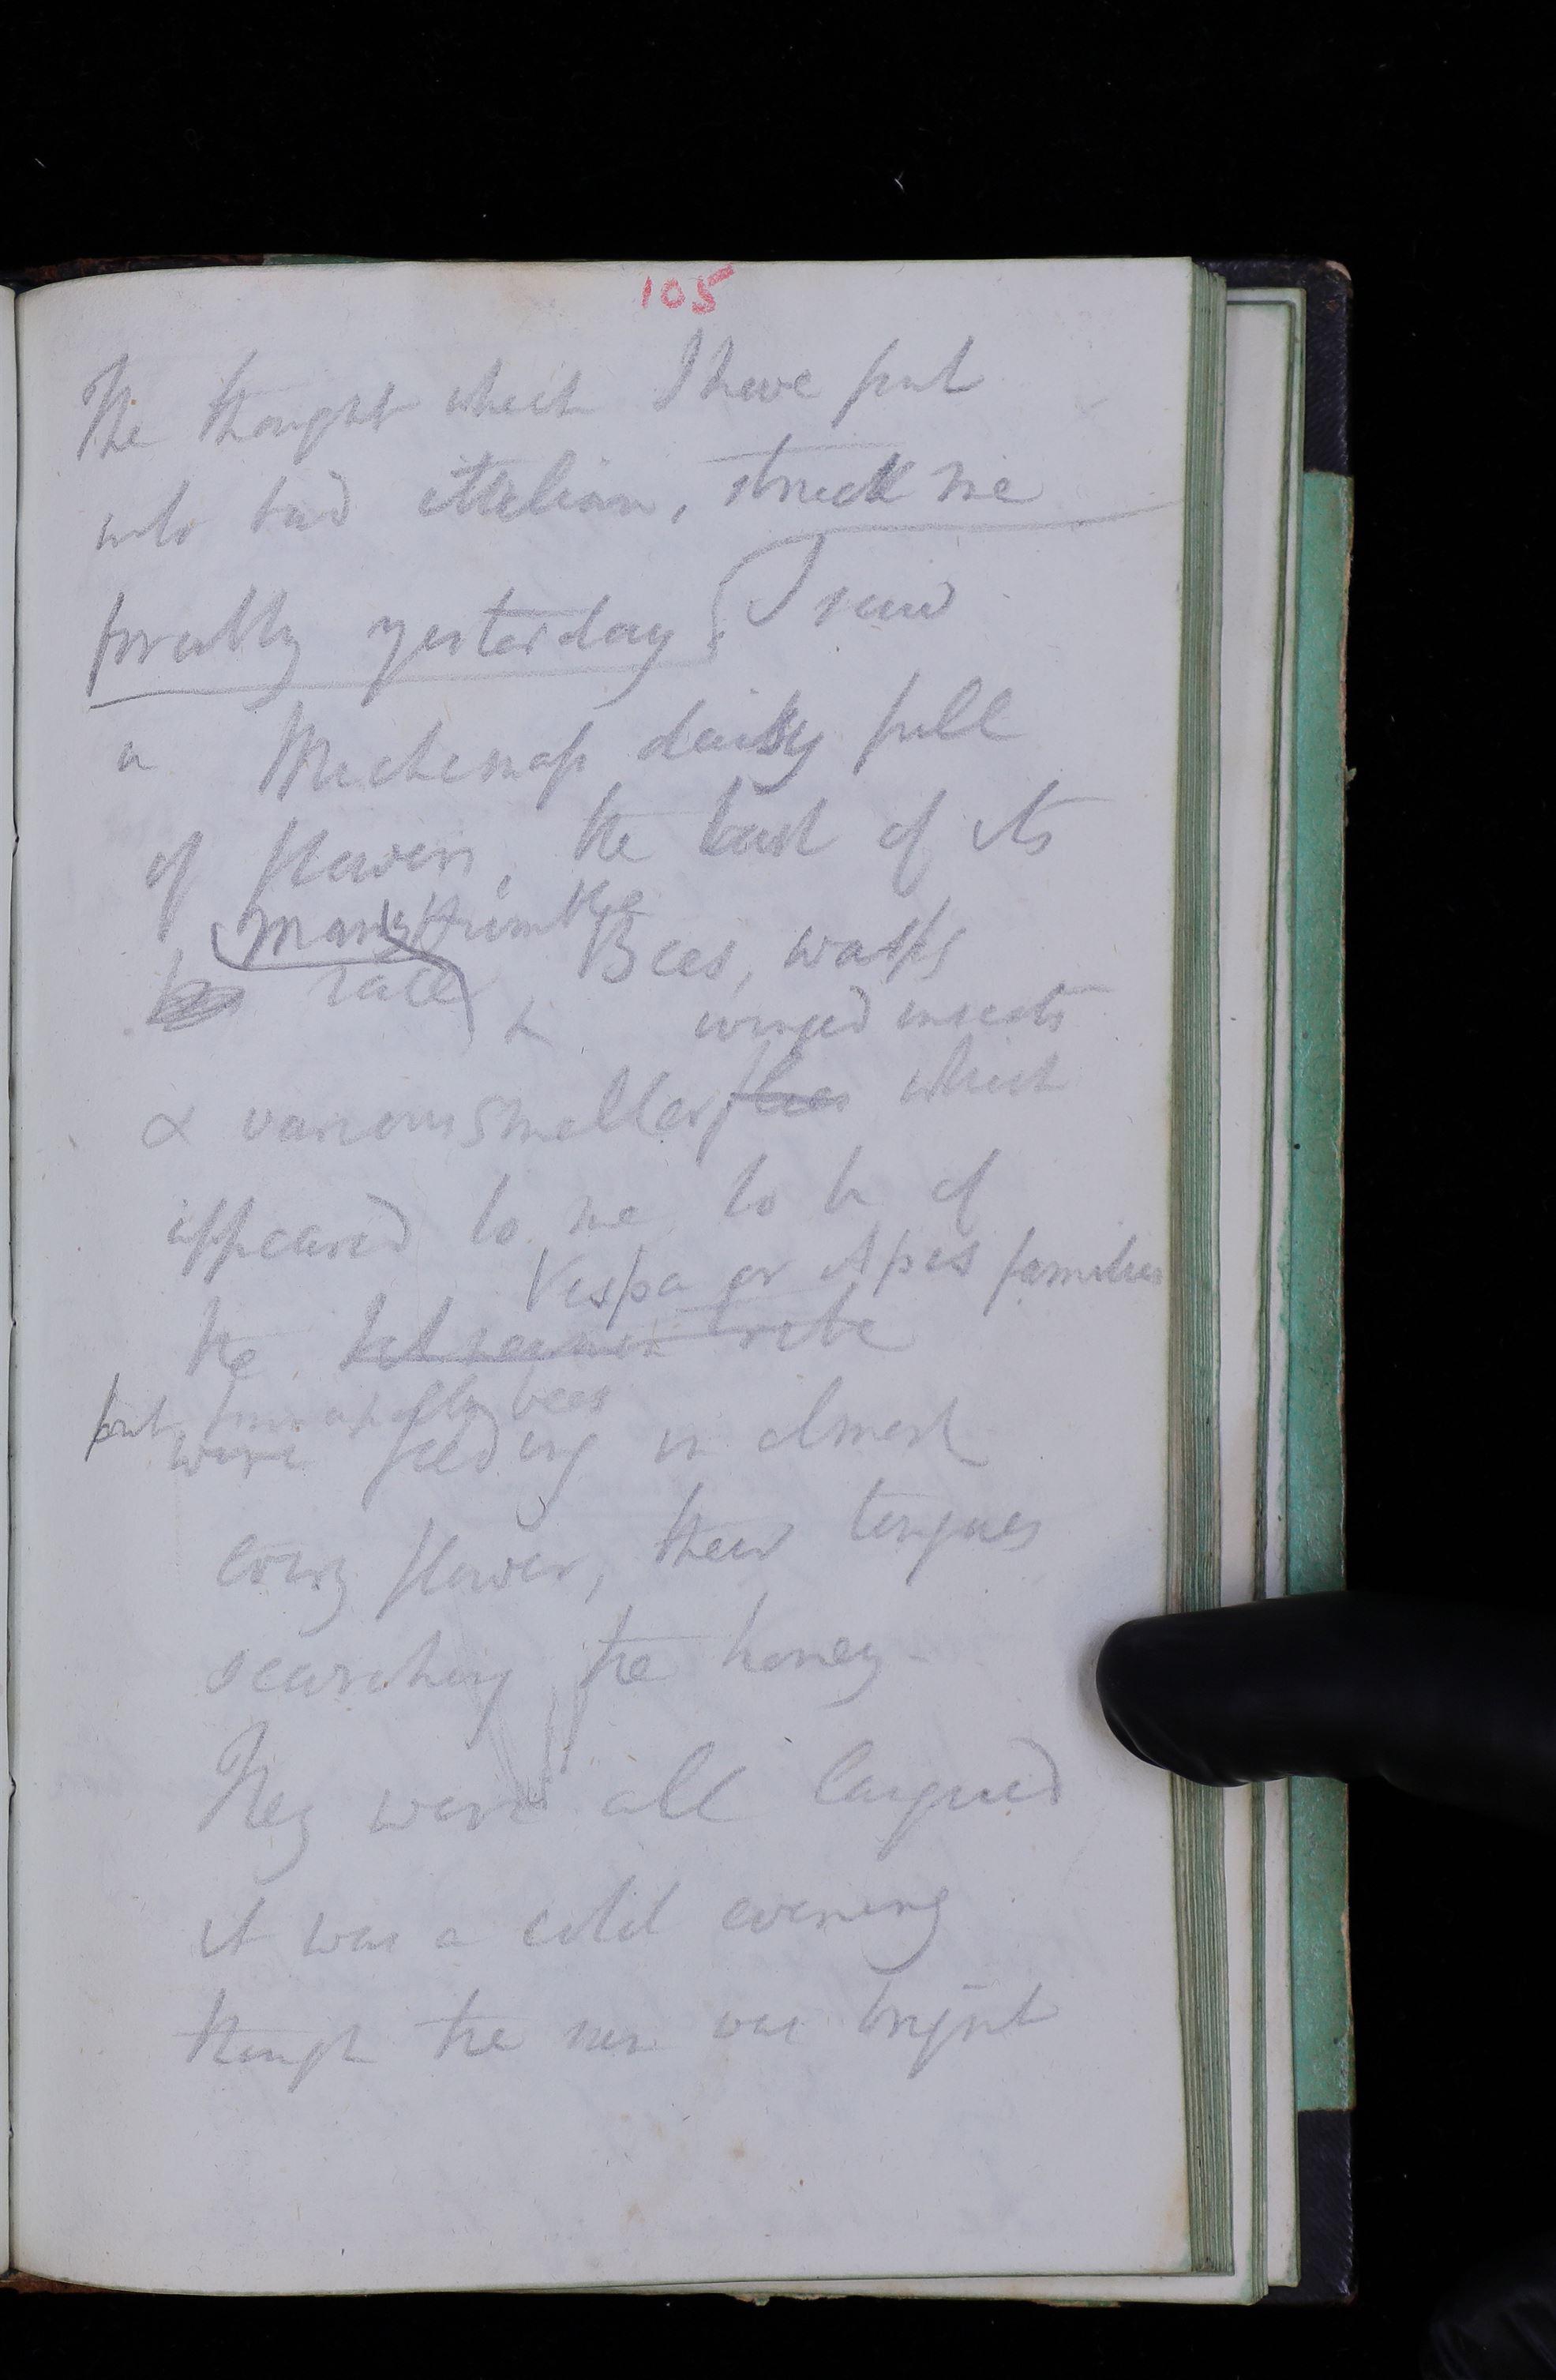 105
The thought which I have put
into bad ittalian, struck me
forcibly yesterday I saw
a Michemass daisy full
of flowers, the last of its
many Humble
race Bees, wasps
& winged insects
& various smaller flies which
appeared to me to be of
Vespa or Apis families
the tribe
but principally bees
were feeding in almost
every flower, their tongues
searching the honey
They were all languid
it was a cold evening
though the sun was bright